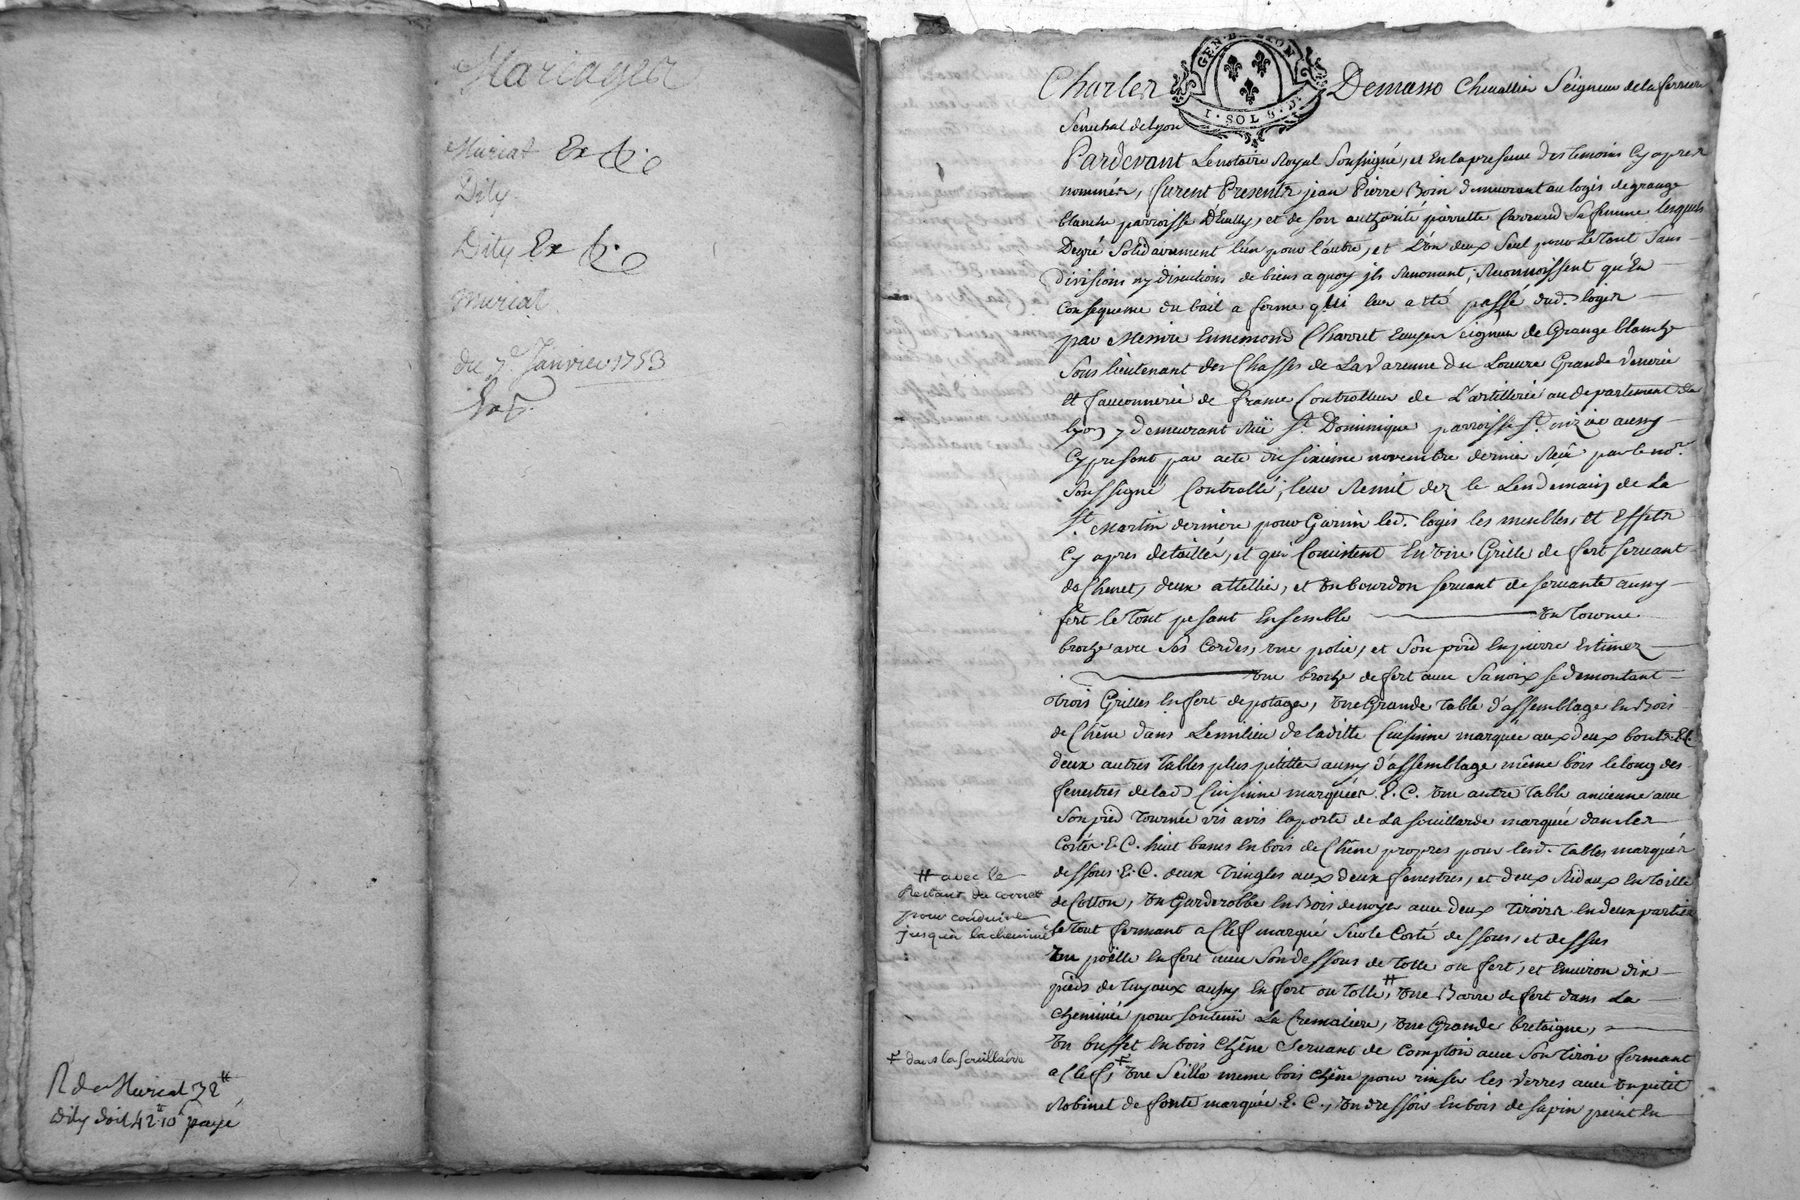 Mariages
Muriat Ex
Dily
Dily Ex
Muriat
du 7e Janvier 1753
R de Muriat 32 ₶
Dily doit 42 ₶ 10 s payé
GEN. DE LYON
1 . SOL 9 . D.
Charles Demasso Chevallier Seigneur de la ferriere
Senechal de Lyon
Pardevant Le notaire Royal Soussigné, et En la presence des temoins Cy apres
nommés, furent Presents jean Pierre Boin demeurant au logis de grange
blanche parroisse D'Eully, et de son authorité pierrette Carraud Sa femme lesquels
De gré Solidairement l'un pour l'autre, et L'un deux Seul pour Le tout Sans
divisions ny discutions de biens a quoy ils Renoncent, Reconnoissent qu'En
Consequence du bail a ferme qui leur a eté passé dud. logis
par Messire Ennemond Charret Ecuyer Seigneur de Grange blanche
Sous lieutenant des Chasses de La Varenne du Louvre Grande Venerie
et fauconnerie de france Controlleur de L'artillerie au departement de
lyon y demeurant Rüe St. Dominique parroisse St. nizier aussy
Cy present par acte du sixieme novembre dernier Reçû par le nore.
Soussigné Controllé, leur Remit dez le Lendemain de La
St. Martin derniere pour Garnir led. logis les meubles, et Effets
Cy apres detaillés, et qui Consistent En Une Grille de fert servant
de Chenet, deux attellier, et Un bourdon servant de servante aussy
fert le tout pesant Ensemble Un tourne
broche avec Ses Cordes, une polie, et Son poid En pierre Estimez
Une broche de fert avec Sa noix se demontant
trois Grilles En fert de potager, Une Grande table d'assemblage En Bois
de Chêne dans Le milieu de ladite Cuisinne marquée aux deux bouts E.C.
deux autres tables plus petittes aussy d'assemblage même bois le long des
fenestres de lad. Cuisinne marquées E. C. Une autre table ancienne avec
Son pied tournée vis avis la porte de La souillarde marquée dans les
Cortés E. C. huit bancs En bois de Chêne propres pour lesd. tables marqués
dessous E. C. deux tringles aux deux fenestres, et deux Ridaux En toille
de Cotton, Un Garderobbe En Bois de noyer avec deux tiroirs En deux parties
Le tout fermant a Clef marqué Sur le Corté dessous, et dessus
Un poëlle En fert avec Son dessous de tolle ou fert, et Environ dix
pieds de tuyaux aussy En fert ou tolle, # Une Barre de fert dans La
Cheminée pour soutenir La Cremaliere, Une Grande bretaigne,
Un buffet En bois Chêne Servant de Comptoir avec Son tiroir fermant
a Clef, Ŧ Une Seille meme bois Chêne pour rinser les verres avec Un petit
Robinet de fonte marquée E. C., Un dressoir En bois de sapin peint En
# avec le
Restant du cornet
pour conduire
jusqu'à la cheminée
Ŧ dans la souillarde